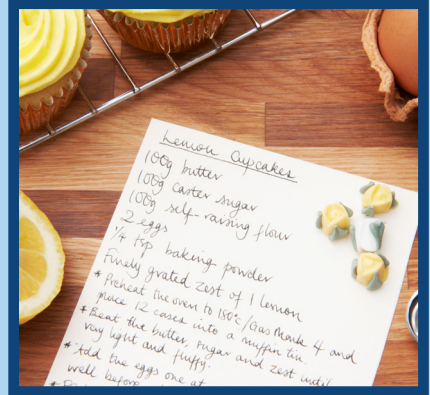 Lemon Cupcakes
100g butter
100g caster sugar
100g self-raising flour
2 eggs
1/4 tsp baking powder
Finely grated zest of 1 lemon
* Preheat the oven to 180°c/Gas Mark 4 and
place 12 cases into a muffin tin
* Beat the butter, sugar and zest until
very light and fluffy.
* Add the eggs one at
well before